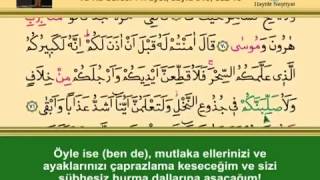 Hayrât Neşriyat
هٰرُونَ وَمُوسٰى قَالَ اٰمَنْتُمْ لَهُ قَبْلَ اَنْ اٰذَنَ لَكُمْ اِنَّهُ لَكَبِيرُكُمُ
الَّذِى عَلَّمَكُمُ السِّحْرَ فَلَاُقَطِّعَنَّ اَيْدِيَكُمْ وَاَرْجُلَكُمْ مِنْ خِلَافٍ
وَلَاُصَلِّبَنَّكُمْ فِى جُذُوعِ النَّخْلِ وَلَتَعْلَمُنَّ اَيُّنَا اَشَدُّ عَذَابًا وَاَبْقٰى
Öyle ise (ben de), mutlaka ellerinizi ve
ayaklarınızı çaprazlama keseceğim ve sizi
şübhesiz hurma dallarına asacağım!